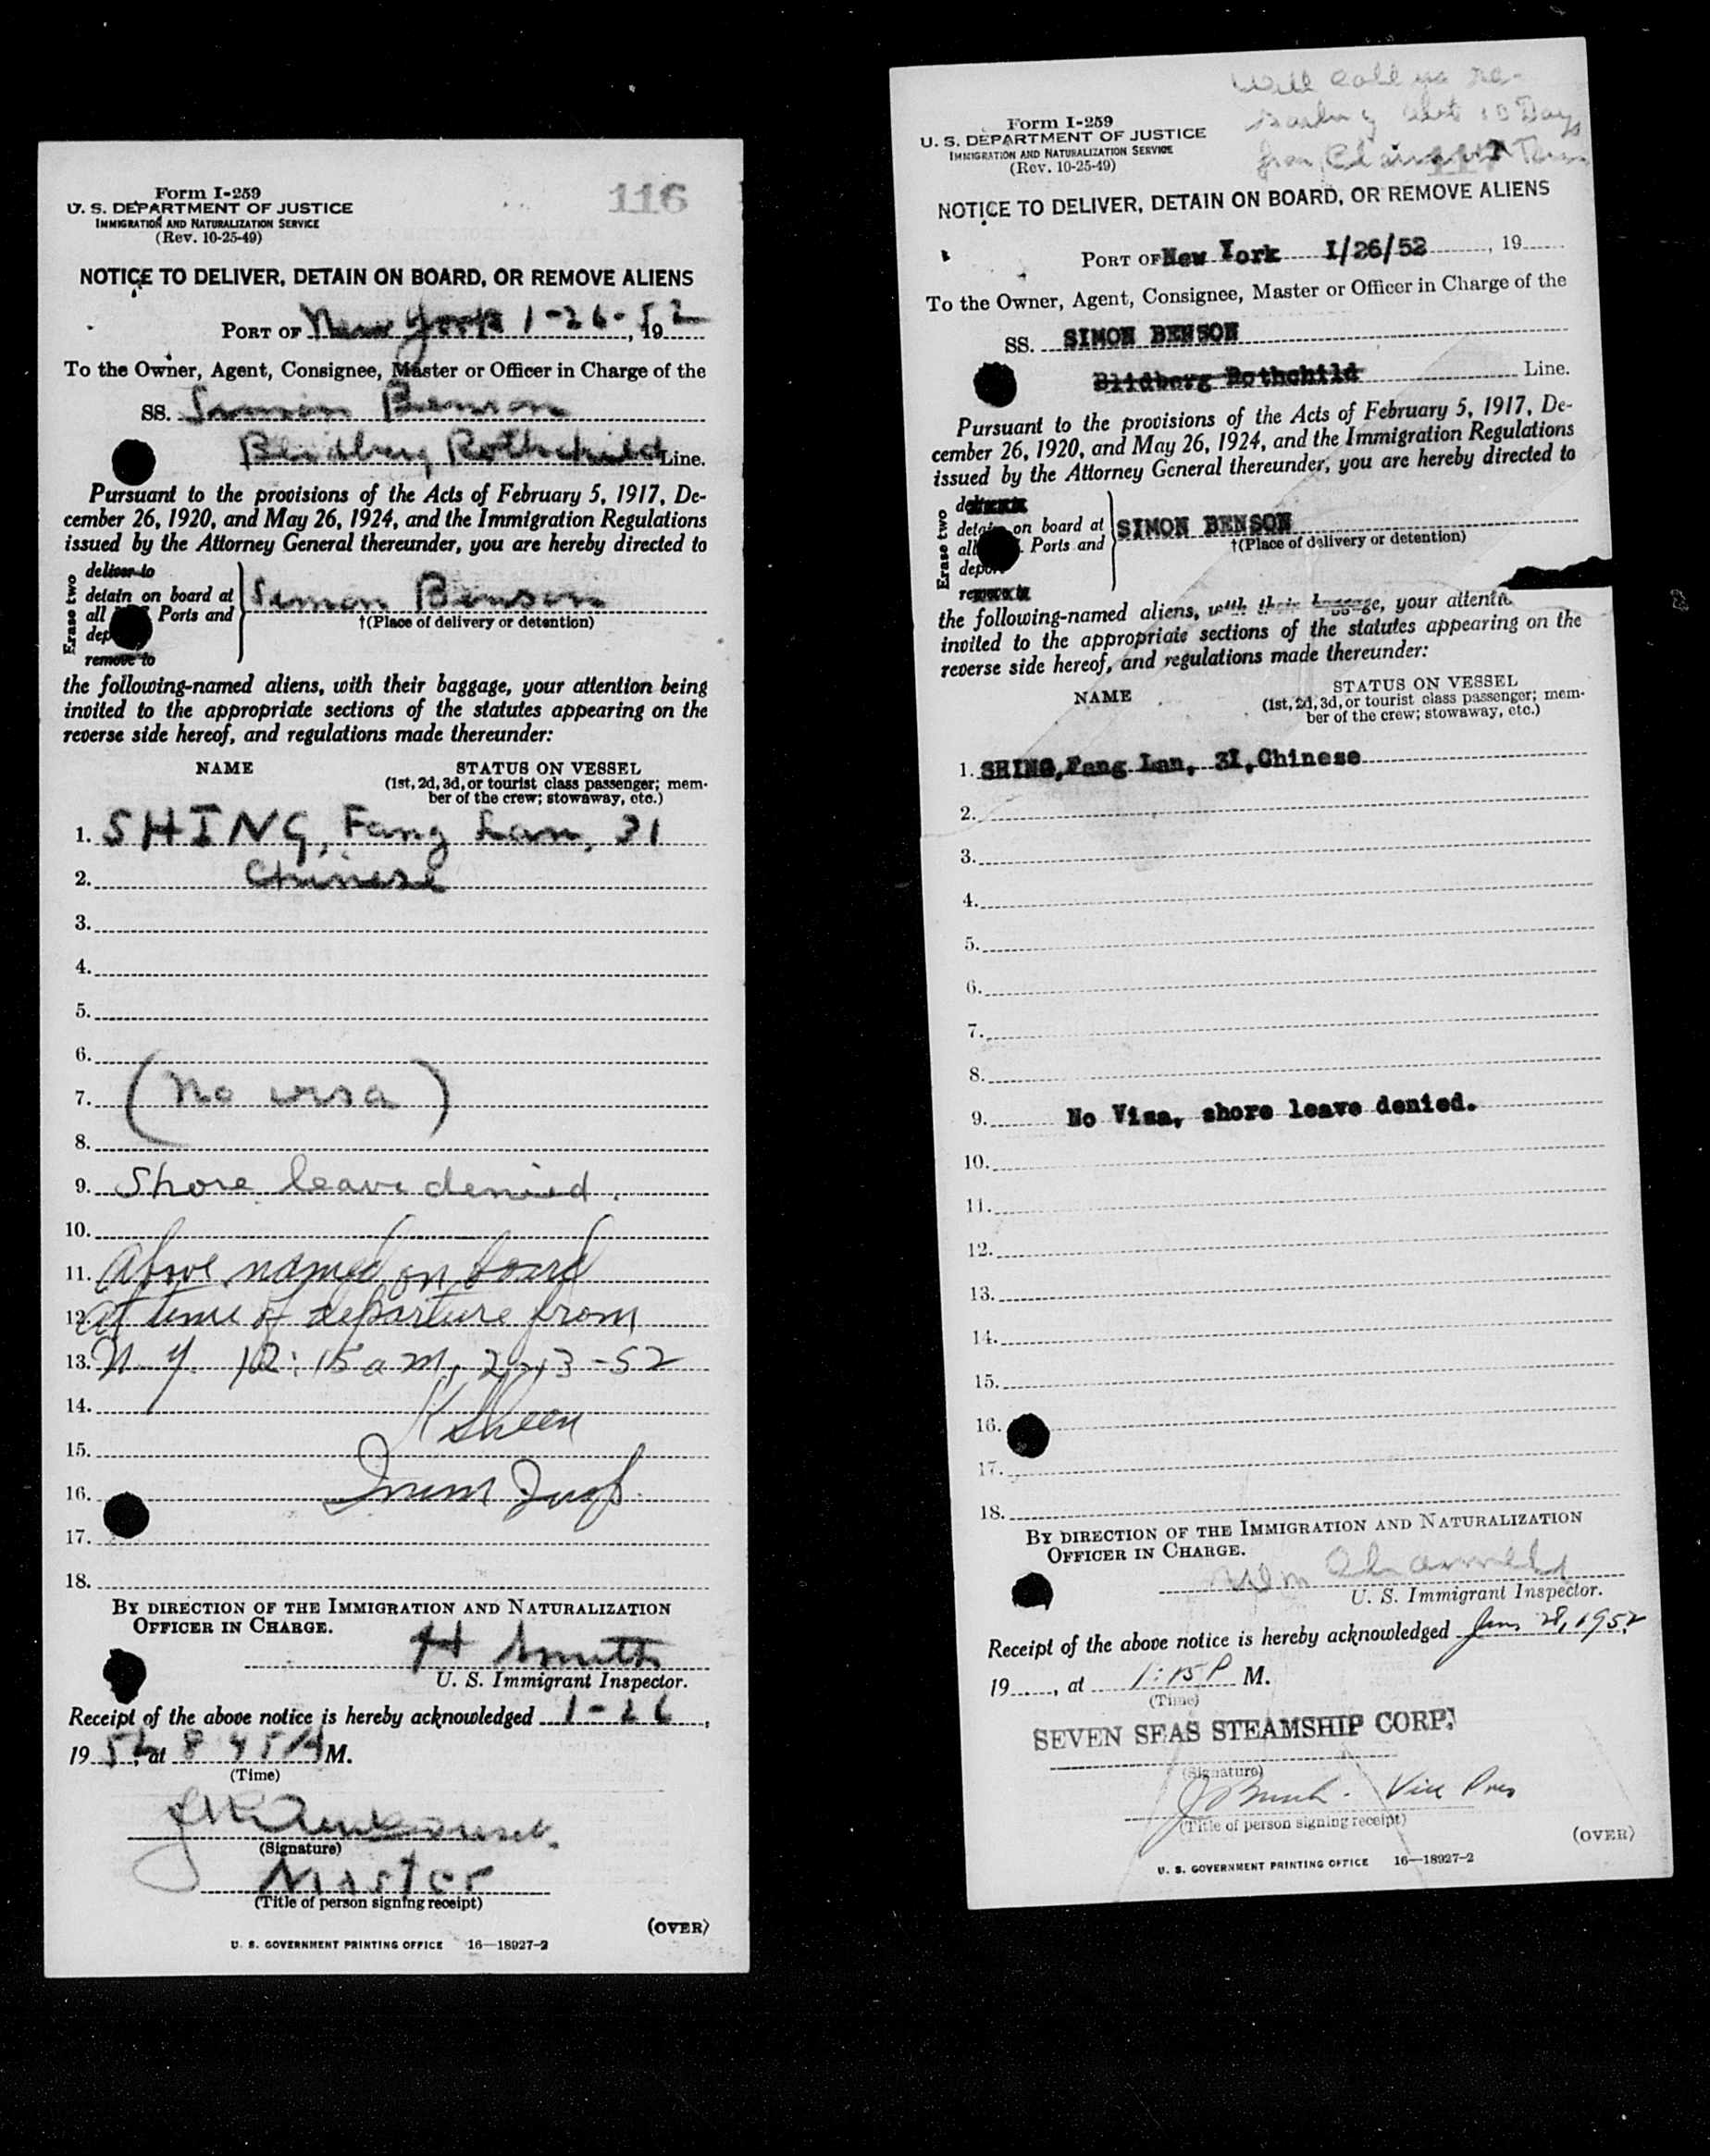 116
Form I-259
U. S. DEPARTMENT OF JUSTICE
IMMIGRATION AND NATURALIZATION SERVICE
(Rev. 10-25-49)
NOTICE TO DELIVER, DETAIN ON BOARD, OR REMOVE ALIENS
PORT OF New York 1-26-, 1952
To the Owner, Agent, Consignee, Master or Officer in Charge of the
SS. Simon Benson
Blidberg Rothchild Line.
Pursuant to the provisions of the Acts of February 5, 1917, De-
cember 26, 1920, and May 26, 1924, and the Immigration Regulations
issued by the Attorney General thereunder, you are hereby directed to
Erase two
deliver to
detain on board at
all Ports and
dep
remove to
Simon Benson
†(Place of delivery or detention)
the following-named aliens, with their baggage, your attention being
invited to the appropriate sections of the statutes appearing on the
reverse side hereof, and regulations made thereunder:
NAME STATUS ON VESSEL
(1st, 2d, 3d, or tourist class passenger; mem-
ber of the crew; stowaway, etc.)
1. SHING, Fang Lan, 31
2. Chinese
3.
4.
5.
6.
7. (No visa)
8.
9. Shore leave denied.
10.
11. Above named on board
12. at time of departure from
13. N.Y. 12:15 a m, 2-13-52
14.
15.
16.
17.
18.
BY DIRECTION OF THE IMMIGRATION AND NATURALIZATION
OFFICER IN CHARGE.
H Smith
U. S. Immigrant Inspector.
Receipt of the above notice is hereby acknowledged 1-26,
1952, at 8 45 A M.
(Time)
(Signature)
Master
(Title of person signing receipt)
(OVER)
U. S. GOVERNMENT PRINTING OFFICE 16—18927-2
Will call
10 Days
117
Form I-259
U. S. DEPARTMENT OF JUSTICE
IMMIGRATION AND NATURALIZATION SERVICE
(Rev. 10-25-49)
NOTICE TO DELIVER, DETAIN ON BOARD, OR REMOVE ALIENS
PORT OF New York 1/26/52, 19
To the Owner, Agent, Consignee, Master or Officer in Charge of the
SS. SIMON BENSON
Blidberg Rothchild Line.
Pursuant to the provisions of the Acts of February 5, 1917, De-
cember 26, 1920, and May 26, 1924, and the Immigration Regulations
issued by the Attorney General thereunder, you are hereby directed to
Erase two
detain on board at
all Ports and
depor
SIMON BENSON
†(Place of delivery or detention)
the following-named aliens, with their baggage, your attentio
invited to the appropriate sections of the statutes appearing on the
reverse side hereof, and regulations made thereunder:
NAME STATUS ON VESSEL
(1st, 2d, 3d, or tourist class passenger; mem-
ber of the crew; stowaway, etc.)
1. SHING, Fang Lan, 31, Chinese
2.
3.
4.
5.
6.
7.
8.
9. No Visa, shore leave denied.
10.
11.
12.
13.
14.
15.
16.
17.
18.
BY DIRECTION OF THE IMMIGRATION AND NATURALIZATION
OFFICER IN CHARGE.
U. S. Immigrant Inspector.
Receipt of the above notice is hereby acknowledged Jan 28, 1952
19, at 1:15 P M.
(Time)
SEVEN SEAS STEAMSHIP CORP.
(Signature)
Vice Pres
(Title of person signing receipt)
(OVER)
U. S. GOVERNMENT PRINTING OFFICE 16—18927-2